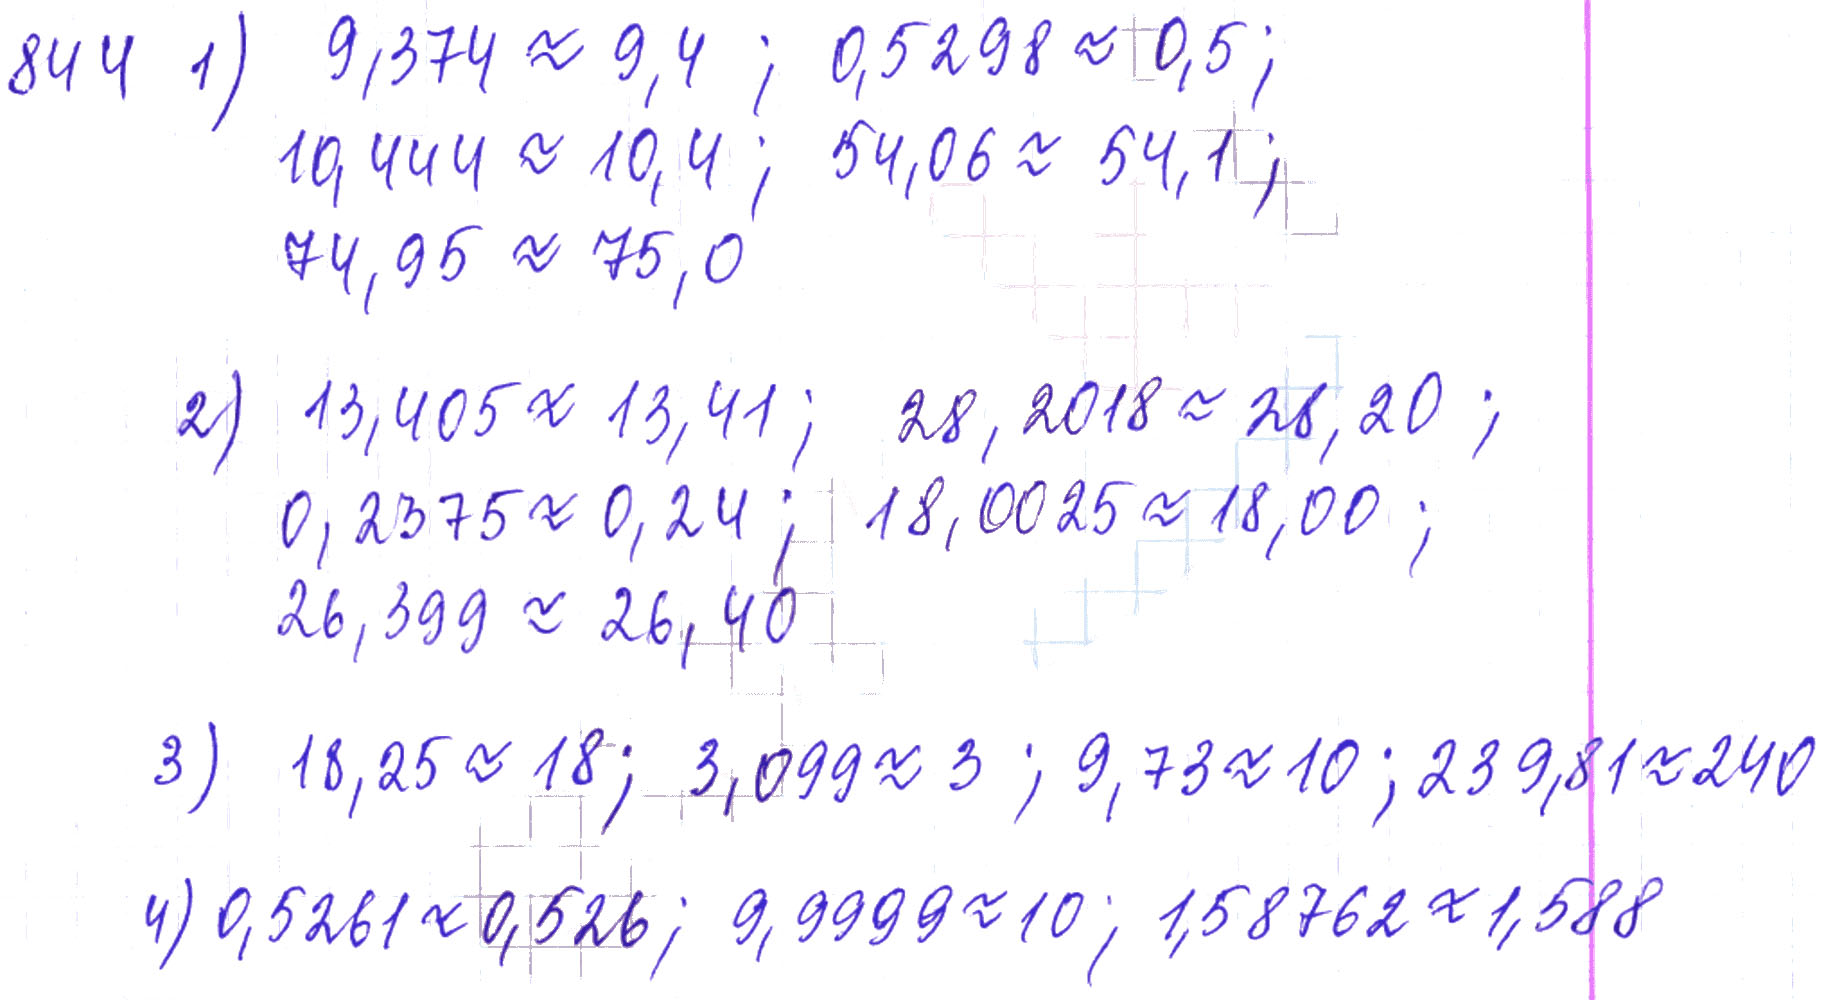 844 1) 9,374 ≈ 9,4 ; 0,5298 ≈ 0,5;
10,444 ≈ 10,4; 54,06 ≈ 54,1;
74,95 ≈ 75,0
2) 13,405 ≈ 13,41; 28,2018 ≈ 28,20 ;
0,2375 ≈ 0,24; 18,0025 ≈ 18,00 ;
26,399 ≈ 26,40
3) 18,25 ≈ 18; 3,099 ≈ 3 ; 9,73 ≈ 10; 239,81 ≈ 240
4) 0,5261 ≈ 0,526; 9,9999 ≈ 10; 1,58762 ≈ 1,588